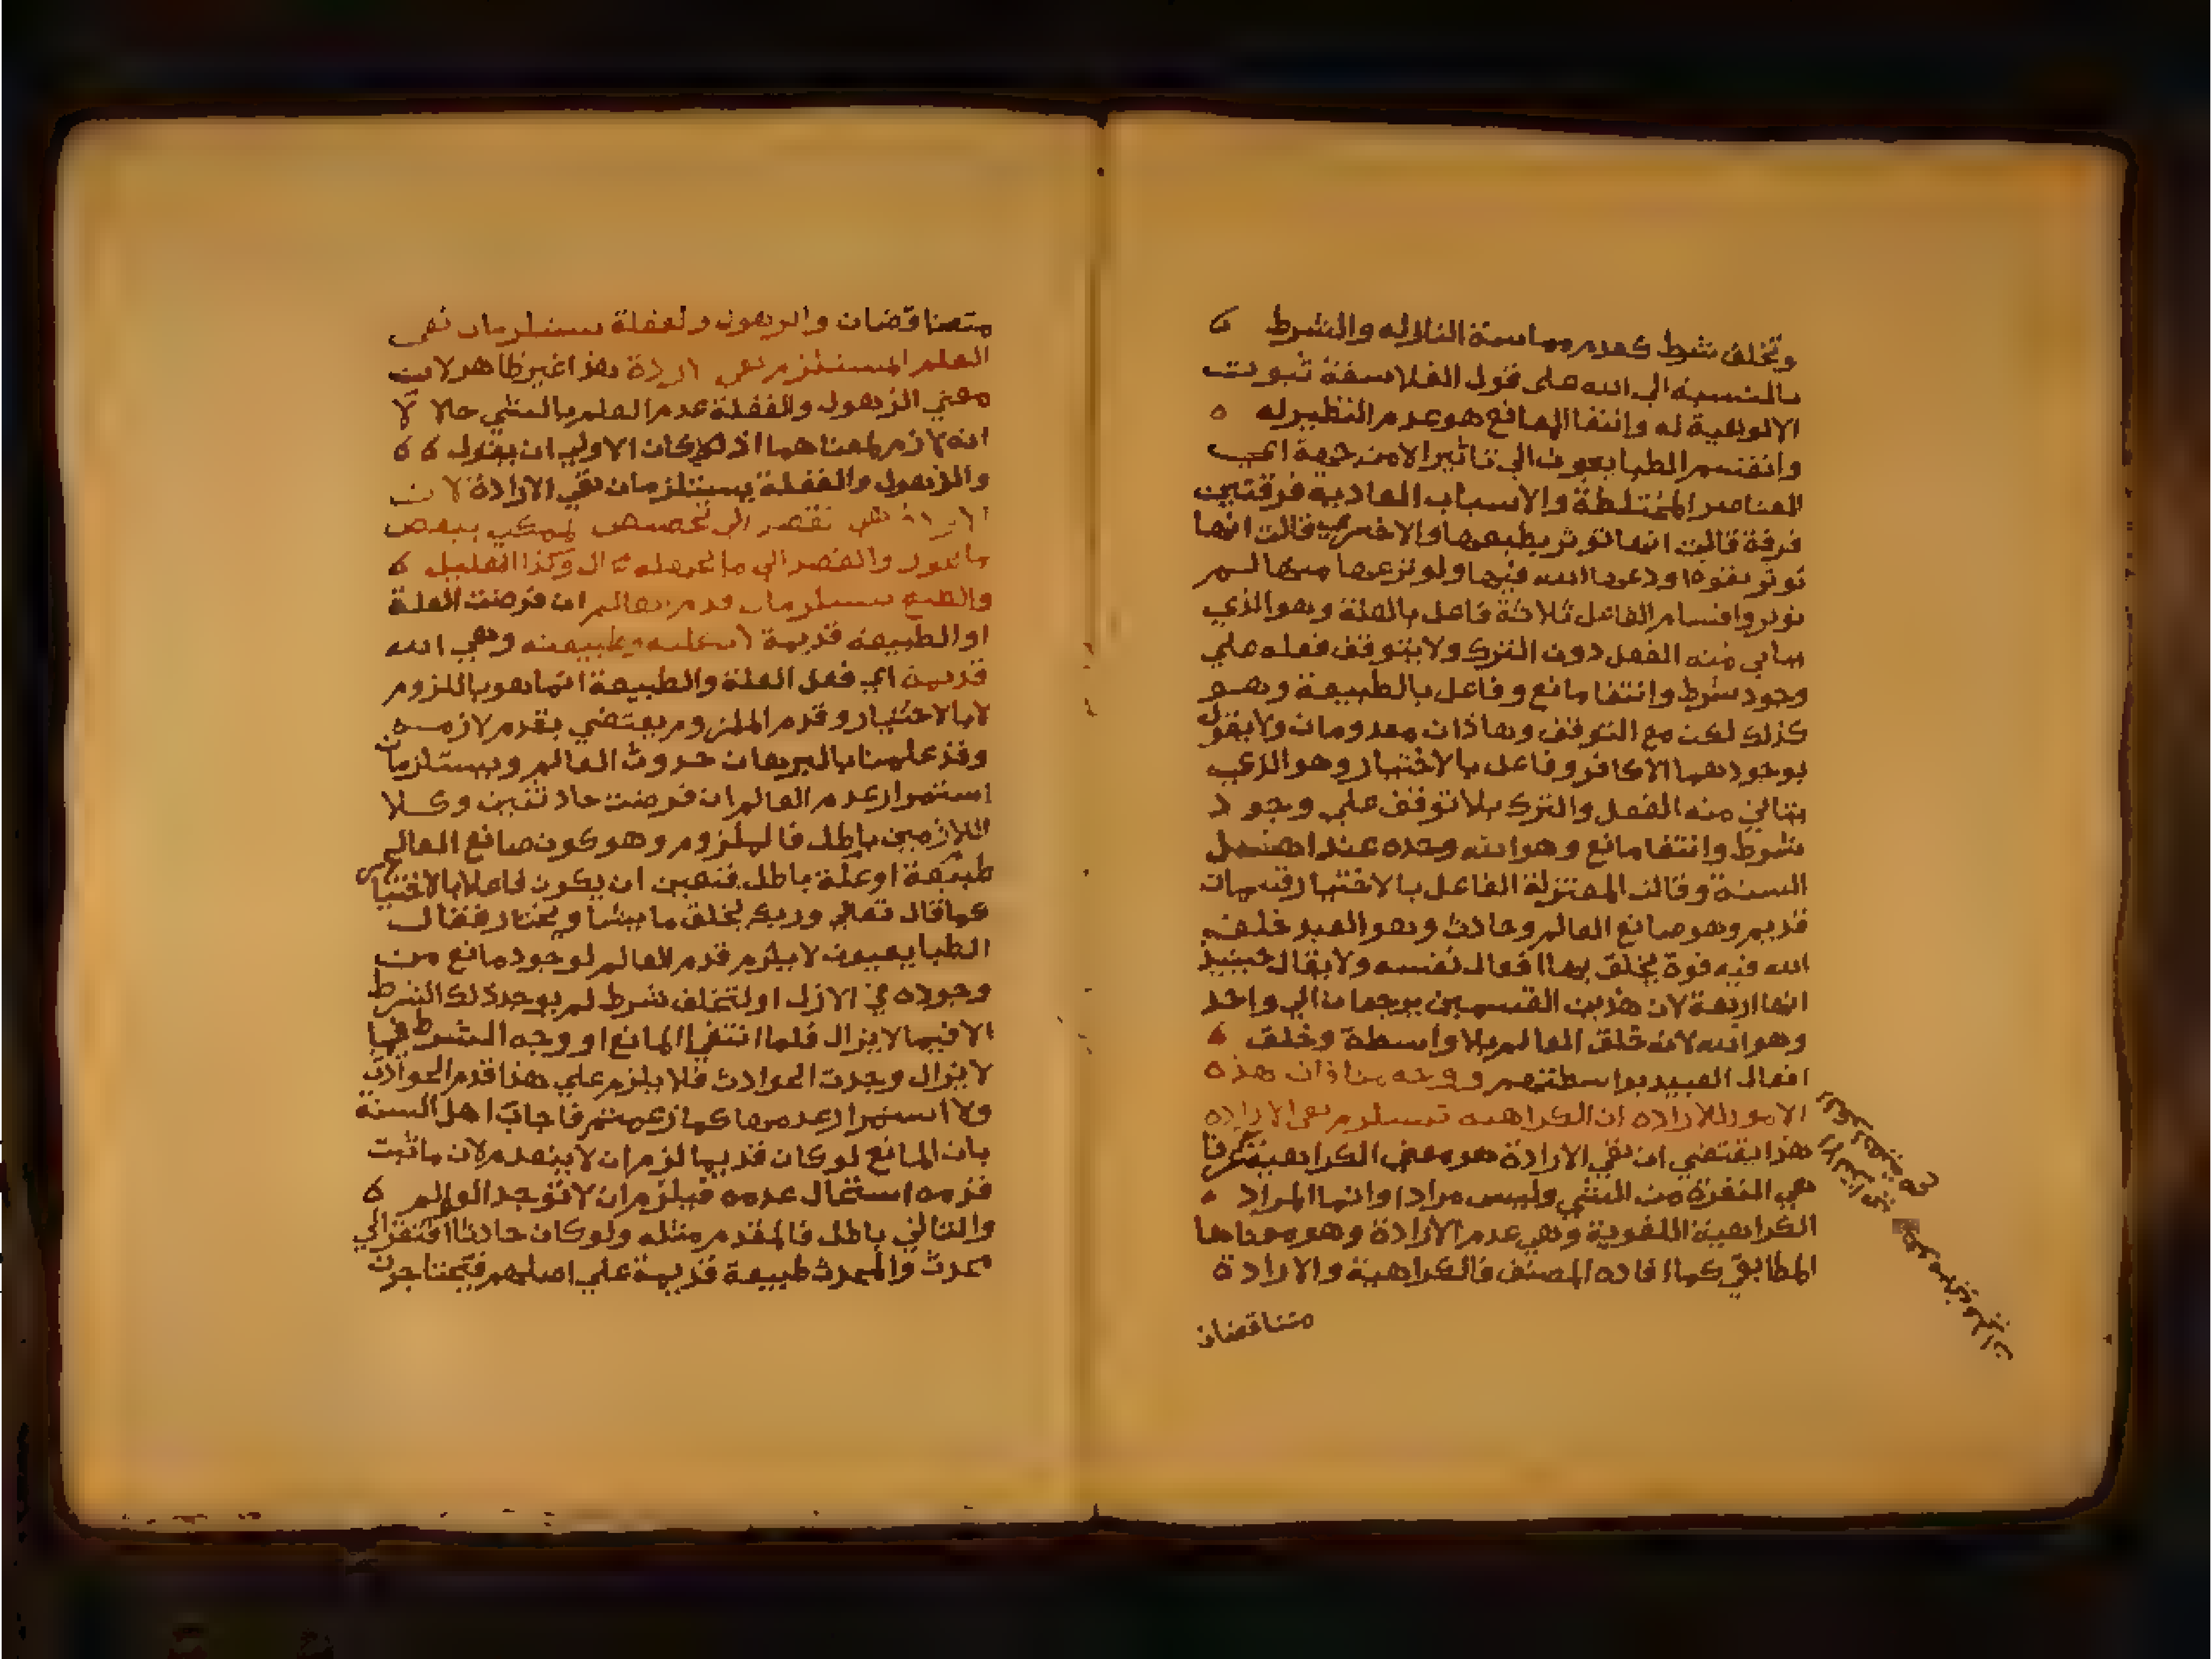 وتخلف شرط كعدم مماسة النار له والشرط
بالنسبة الي الله علي قول الفلاسفة ثبوت
الالوهية له وانتفا المانع هو عدم النظير له
وانقسم الطبايعيون الي تاثير الامن جهة اي
العناصر المختلطة والاسباب العادية فرقتين
فرقة قالت انها توثر بطبعها والاخري قالت انها
توثر بقوة اودعها الله فيها ولو نزعها منها لم
توثر واقسام الفاعل ثلاثة فاعل بالعلة وهو الذي
يتاتي منه الفعل دون الترك ولا يتوقف فعله علي
وجود شرط وانتفا مانع وفاعل بالطبيعة وهو
كذلك لكن مع التوقف وهاذان معدومان ولا يقول
بوجودهما الا كافر وفاعل بالاختيار وهو الذي
يتاتي منه الفعل والترك بلا توقف علي وجود
شرط وانتفا مانع وهو الله وحده عند اهل
السنة وقالت المعتزلة الفاعل بالاختيار قسمان
قديم وهو صانع العالم وحادث وهو العبد خلق
الله فيه قوة يخلق بها افعال نفسه ولا يقال حينيذ
انها اربعة لان هذين القسمين يرجعان الي واحد
وهو الله لان خلق العالم بلا واسطة وخلق
افعال العبيد بواسطتهم ووجه منافاة هذه
الامور للاراده ان الكراهيه تستلزم نفي الاراده
هذا يقتضي ان نفي الارادة هو معني الكراهية
هي النفرة من الشي وليس مرادا وانما المراد
الكراهية اللغوية وهي عدم الارادة وهو معناها
المطابقي كما افاده المصنف فالكراهية والارادة
متناقضان
متناقضان والذهول والغفلة يستلزمان نفي
العلم المستلزم نفي الارادة هذا غير ظاهر لان
معني الذهول والغفلة عدم العلم بالشي حالا لا
انه لازم لمعناهما اذ كان الاولي ان يقول
والذهول والغفلة يستلزمان نفي الارادة لان
الارادة هي القصد الي تخصيص الممكن ببعض
ما يجوز والقصد الي ما لم يعلم محال وكذا التعليل
والطبع يستلزمان قدم العالم ان فرضت العلة
او الطبيعة قديمة لان عليته وطبيعته وهي الله
قديمة اي فعل العلة والطبيعة انما هو باللزوم
لا بالاختيار وقدم الملزوم يقتضي بقدم لازمه
وقد علمنا بالبرهان حدوث العالم ويستلزمان
استمرار عدم العالم ان فرضت حادثتين وكلا
اللازمين باطل فالملزوم وهو كون صانع العالم
طبيعة او علة باطل فتعين ان يكون فاعلا بالاختيار
كما قال تعالي وربك يخلق ما يشا ويختار فقال
الطبايعيون لا يلزم قدم العالم لوجود مانع من
وجوده في الازل او لتخلف شرط لم يوجد ذلك الشرط
الا فيما لا يزال فلما انتفي المانع او وجد الشرط فيما
لا يزال وجدت الحوادث فلا يلزم علي هذا قدم الحوادث
ولا استمرار عدمها كما زعمتم فاجاب اهل السنة
بان المانع لو كان قديما لزم ان لا ينعدم لان ما ثبت
قدمه استحال عدمه فيلزم ان لا توجد العوالم
والتالي باطل فالمقدم مثله ولو كان حادثا افتقر الي
محدث والمحدث طبيعة قديمة علي اصلهم فتحتاج